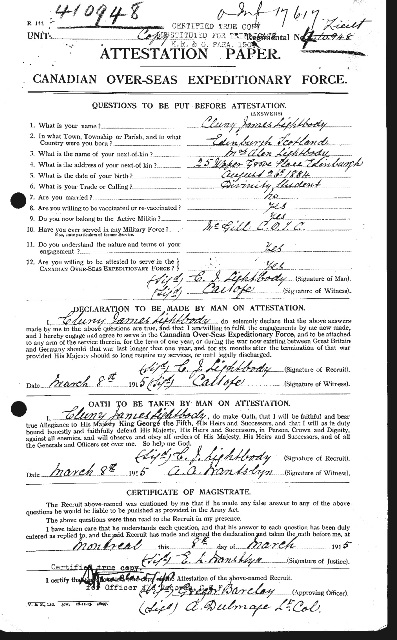 410948
CERTIFIED TRUE COPY
Lieut
UNIT
ATTESTATION PAPER.
CANADIAN OVER-SEAS EXPEDITIONARY FORCE.
QUESTIONS TO BE PUT BEFORE ATTESTATION.
(ANSWERS)
1. What is your name? Cluny James Lightbody
2. In what Town, Township or Parish, and in what Country were you born? Edinburgh Scotland
3. What is the name of your next-of-kin? Mrs Alex Lightbody
4. What is the address of your next-of-kin? 25 Upper Grove Place Edinburgh
5. What is the date of your birth? August 26th 1884
6. What is your Trade or Calling? Divinity Student
7. Are you married? no
8. Are you willing to be vaccinated or re-vaccinated? yes
9. Do you now belong to the Active Militia? Yes
10. Have you ever served in any Military Force? McGill C.O.T.C.
If so, state particulars of former Service.
11. Do you understand the nature and terms of your engagement? Yes
12. Are you willing to be attested to serve in the CANADIAN OVER-SEAS EXPEDITIONARY FORCE? Yes
(Sgd) C. J. Lightbody (Signature of Man).
(Sgd) (Signature of Witness).
DECLARATION TO BE MADE BY MAN ON ATTESTATION.
I, Cluny James Lightbody, do solemnly declare that the above answers
made by me to the above questions are true, and that I am willing to fulfil the engagements by me now made,
and I hereby engage and agree to serve in the Canadian Over-Seas Expeditionary Force, and to be attached
to any arm of the service therein, for the term of one year, or during the war now existing between Great Britain
and Germany should that war last longer than one year, and for six months after the termination of that war
provided His Majesty should so long require my services, or until legally discharged.
(Sgd) C. J. Lightbody (Signature of Recruit).
Date March 8th 1915 (Sgd) (Signature of Witness).
OATH TO BE TAKEN BY MAN ON ATTESTATION.
I, Cluny James Lightbody, do make Oath, that I will be faithful and bear
true Allegiance to His Majesty King George the Fifth, His Heirs and Successors, and that I will as in duty
bound honestly and faithfully defend His Majesty, His Heirs and Successors, in Person, Crown and Dignity,
against all enemies, and will observe and obey all orders of His Majesty, His Heirs and Successors, and of all
the Generals and Officers set over me. So help me God.
(Sgd) C. J. Lightbody (Signature of Recruit)
Date March 8th 1915 (Signature of Witness)
CERTIFICATE OF MAGISTRATE.
The Recruit above-named was cautioned by me that if he made any false answer to any of the above
questions he would be liable to be punished as provided in the Army Act.
The above questions were then read to the Recruit in my presence.
I have taken care that he understands each question, and that his answer to each question has been duly
entered as replied to, and the said Recruit has made and signed the declaration and taken the oath before me, at
Montreal this 8th day of March 1915
(Signature of Justice)
Certified true copy
I certify that the above is a true copy of the Attestation of the above-named Recruit.
(Sgd) Gregor Barclay (Approving Officer)
(Sgd) Lt Col.